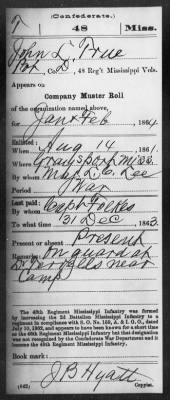 (Confederate.)
T 48 Miss.
John L. True
Pvt, Co. D, 48 Reg't Mississippi Vols.
Appears on
Company Muster Roll
of the organization named above,
for Jan & Feb, 1864.
Enlisted:
When Aug 14, 1861.
Where Graysport Miss.
By whom Maj. L. C. Lee
Period War
Last paid:
By whom Capt Folkes
To what time 31 Dec, 1863.
Present or absent Present
Remarks: On guard at
near
Camp
The 48th Regiment Mississippi Infantry was formed
by increasing the 2d Battalion Mississippi Infantry to a
regiment in compliance with S. O. No. 159, A. & I. G. O., dated
and appears to have been known for a short time
as the 48th Regiment Mississippi Infantry but that designation
was not recognized by the Confederate War Department and it
became the 48th Regiment Mississippi Infantry.
Book mark:
(642) J B Hyatt
Copyist.